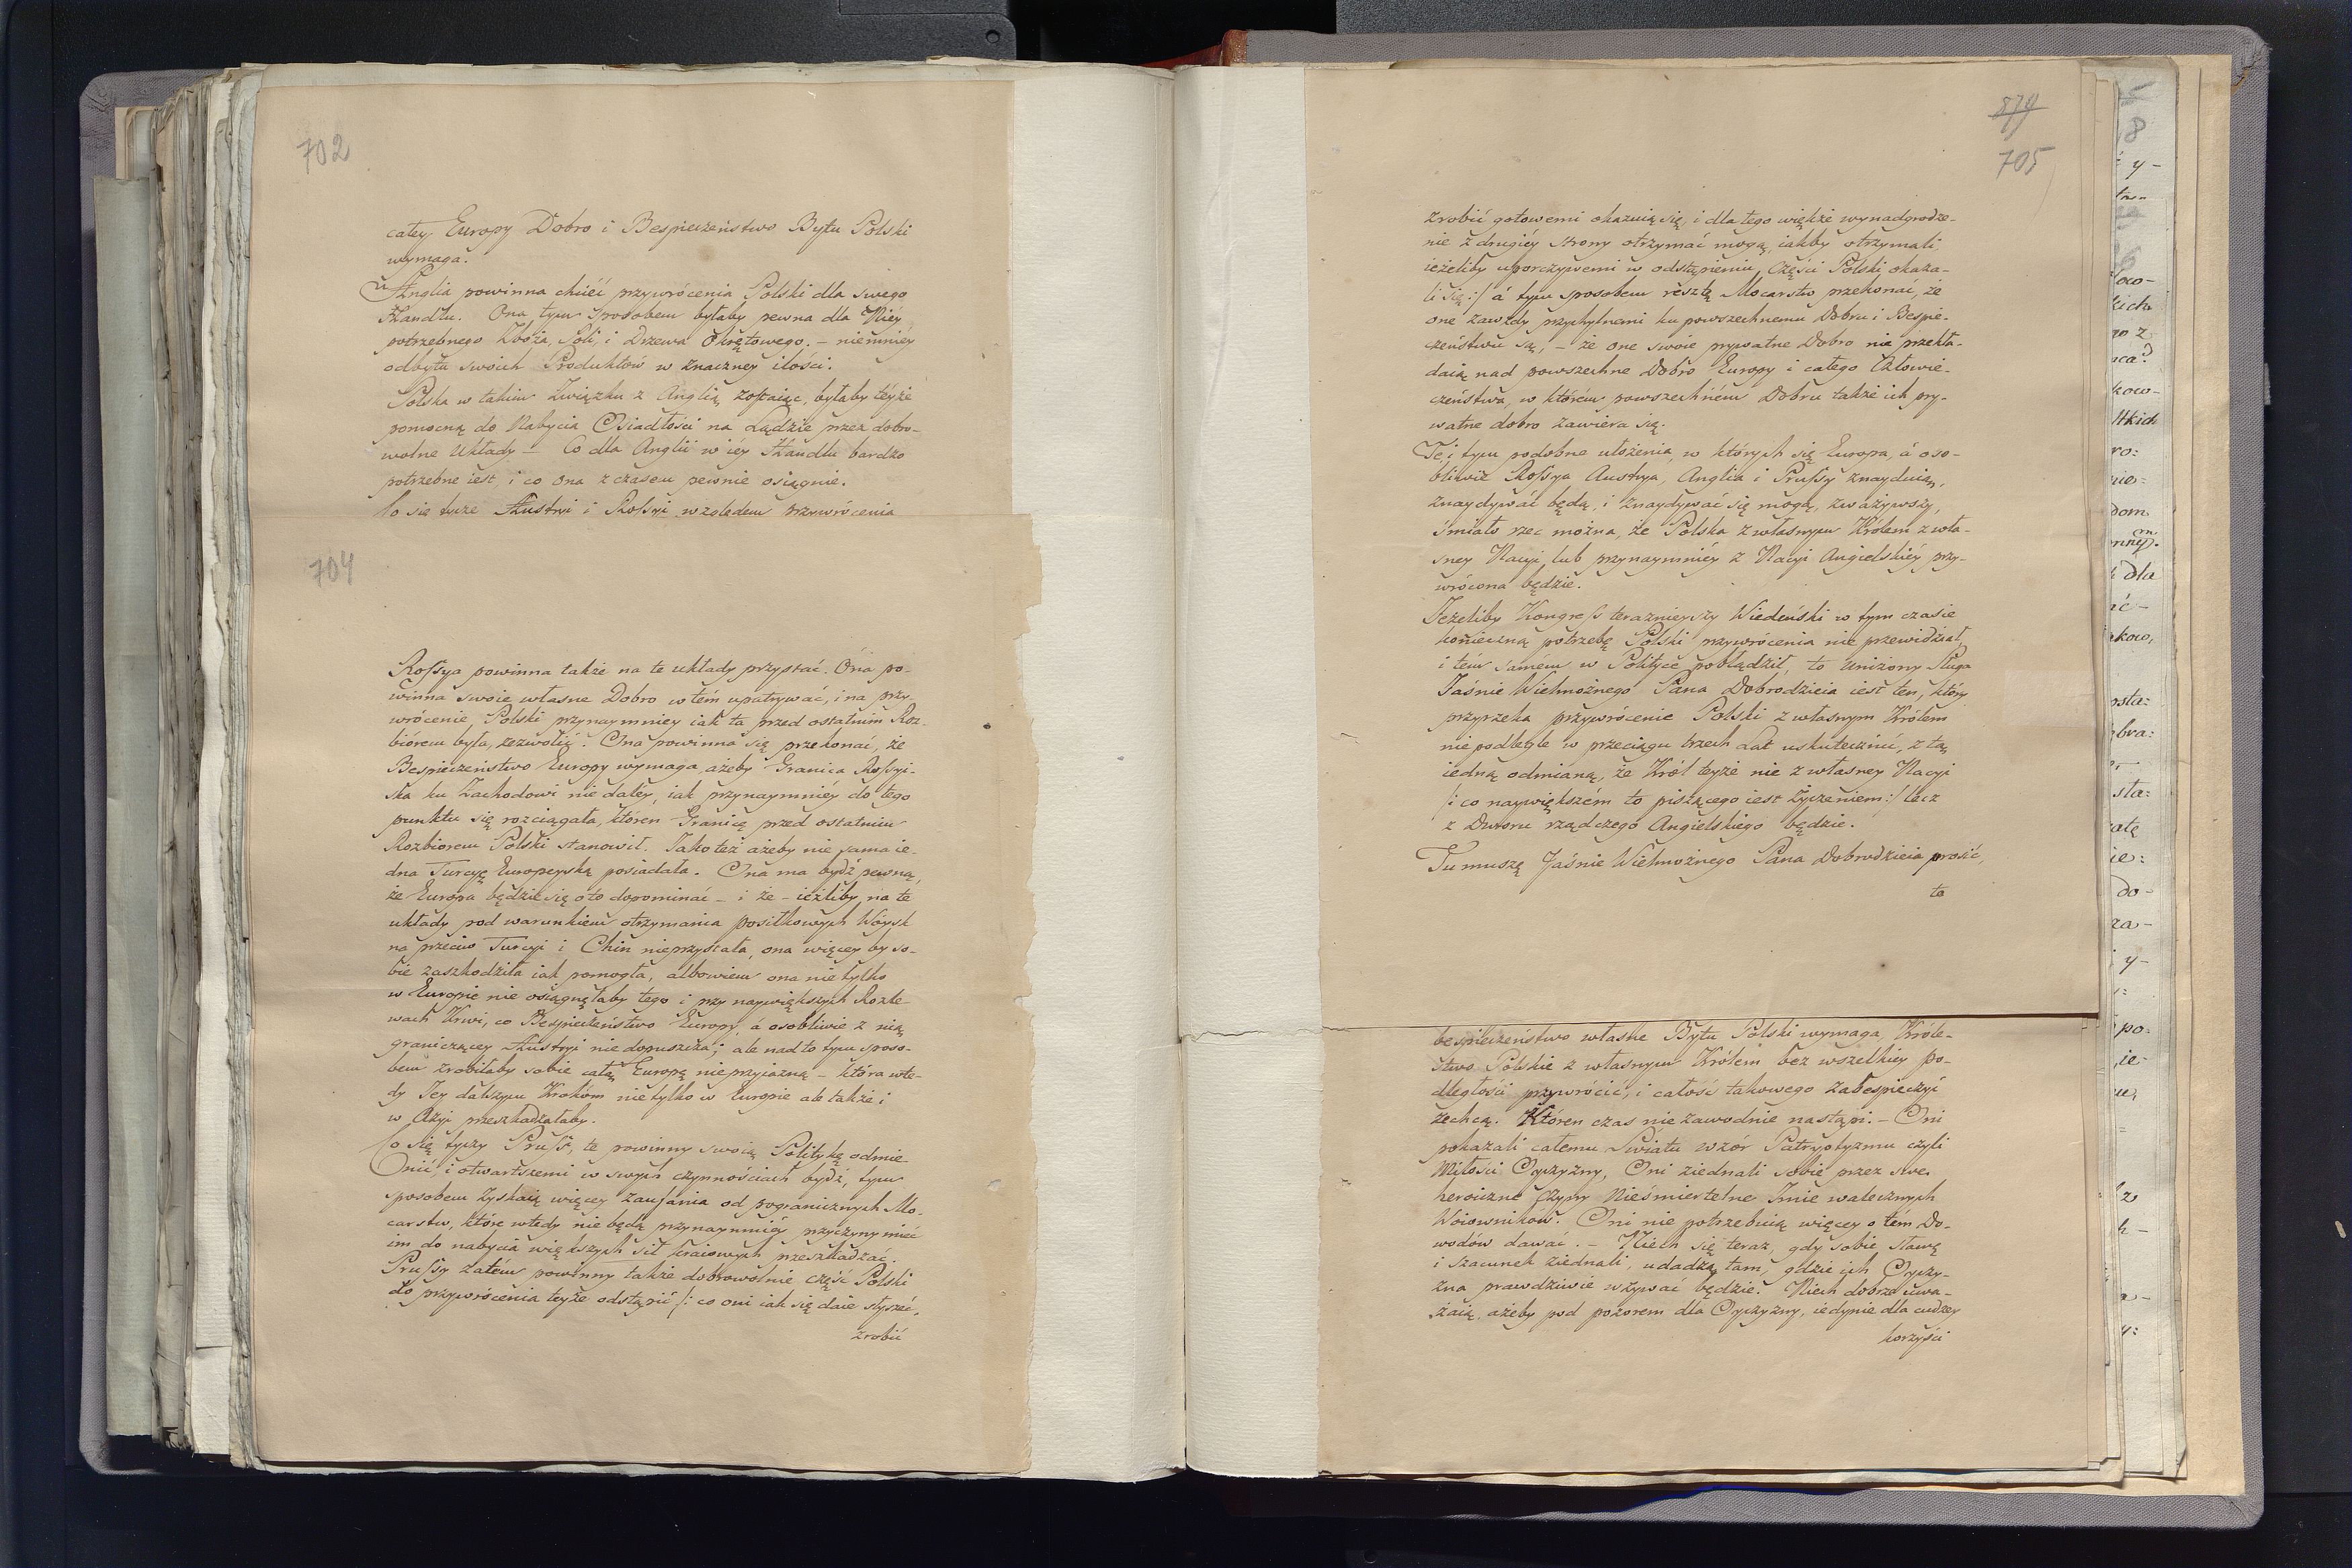 702
całey Europy Dobro i Bespieczeństwo Bytu Polski
wymaga.
Anglia powinna chcieć przywrócenia Polski dla swego
Handlu. Ona tym sposobem byłaby pewna dla Niey
potrzebnego Zboża, Soli, i Drzewa Okrętowego. – niemniey
odbytu swoich Produktów w znaczney ilości.
Polska w takim Związku z Anglią zostaiąc, byłaby teyże
pomocną do Nabycia Osiadłości na Lądzie przez dobro-
wolne Układy – Co dla Anglii w iey Handlu bardzo
potrzebne iest, i co ona z czasem pewnie osiągnie.
Co się tycze Austryi i Rossyi względem przywrócenia
704
Rossya powinna także na te układy przystać. Ona po-
winna swoie własne Dobro w tém upatrywać, i na przy-
wrócenie Polski przynaymniey iak ta przed ostatnim Roz-
biórem była, zezwolić. Ona powinna się przekonać, że
Bespieczeństwo Europy wymaga, ażeby Granica Rossyi-
ska ku Zachodowi nie daléy, iak przynaymniéy do tego
punktu się rozciągała, któren Granicę przed ostatnim
Rozbiorem Polski stanowił. Jako też ażeby nie sama ie-
dna Turcyę Europeyską posiadała. Ona ma bydź pewną,
że Europa będzie się o to dopominać – i że – ieżliby na te
układy pod warunkiem otrzymania posiłkowych Woysk
na przeciw Turcyi i Chin nieprzystała, ona więcey by so-
bie zaszkodziła iak pomogła, albowiem ona nie tylko
w Europie nie osiągnęłaby tego i przy naywiększych Rozle-
wach Krwi, co Bespieczeństwo Europy, á osobliwie z nią
graniczącey Austryi niedopuszcza; ale nad to tym sposo-
bem zrobiłaby sobie całą Europę nieprzyiazną – która wte-
dy Jey dalszym Krokóm nietylko w Europie ale także i
w Azyi przeszkadzałaby.
Co się tyczy Pruss, te powinny swoią Politykę odmie
nić, i otwartszemi w swych czynnościach bydź, tym
sposobem zyskaią więcey zaufania od pogranicznych Mo-
carstw, które wtedy nie będą przynaymniéy przyczyny mieć
im do nabycia większych sił kraiowych przeszkadzać.
Prussy zatém powinny także dobrowolnie część Polski
do przywrócenia teyże odstąpić /: co oni iak się daie słyszeć,
zrobić
879
705
zrobić gotowemi okazuią się, i dla tego większe wynadgrodze-
nie z drugiéy strony otrzymać mogą, iakby otrzymali
ieżeliby uporczywemi w odstąpieniu Części Polski okaza-
li się :/ á tym sposobem resztę Mocarstw przekonać, że
one zawżdy przychylnemi ku powszechnemu Dobru i Bespie-
czeństwu są, – że one swoie prywatne Dobro nie przekła-
daią nad powszechne Dobro Europy i całego Człowie-
czeństwa, w którém powszechném Dobru także ich pry-
watne dobro zawiera się.
Te i tym podobne ułożenia, w których się Europa, á oso-
bliwie Rossya Austrya, Anglia i Prussy znayduią,
znaydywać będą, i znaydywać się mogą, zważywszy,
śmiało rzec można, że Polska z własnym Królem z wła-
sney Nacyi, lub przynaymniéy z Nacyi Angielskiéy przy-
wrócona będzie.
Jeżeliby Kongress teraznieyszy Wiedeński w tym czasie
konieczną potrzebę Polski przywrócenia nie przewidział,
i tém samém w Polityce pobłądził, to uniżony Sługa
Jaśnie Wielmożnego Pana Dobrodzieia iest ten, który
przyrzeka przywrócenie Polski z własnym Królem
niepodległe w przeciągu trzech Lat uskutecznić, z tą
iedną odmianą, że Król teyże nie z własney Nacyi
/: co naywiększém to piszącego iest Życzeniem :/ lecz
z Dworu rządczego Angielskiego będzie.
Tu muszę Jaśnie Wielmożnego Pana Dobrodzieia prosić,
to
bespieczeństwo własne Bytu Polski wymaga, Króle-
stwo Polskie z własnym Królem bez wszelkiey po-
dległości przywrócić, i całość takowego zabespieczyć
zechcą. Któren czas nie zawodnie nastąpi. – Oni
pokazali całemu Swiatu wzór Patryotyzmu czyli
Miłości Oyczyzny, Oni ziednali sobie przez swe
heroiczne Czyny Nieśmiertelne Imie walecznych
Woiowników. Oni nie potrzebuią więcey o tém Do-
wodów dawać. – Niech się teraz, gdy sobie sławę
i szacunek ziednali, udadzą tam, gdzie ich Oyczy-
zna prawdziwie wzywać będzie. Niech dobrze uwa-
żaią, ażeby pod pozorem dla Oyczyzny, iedynie dla cudzey
korzyści